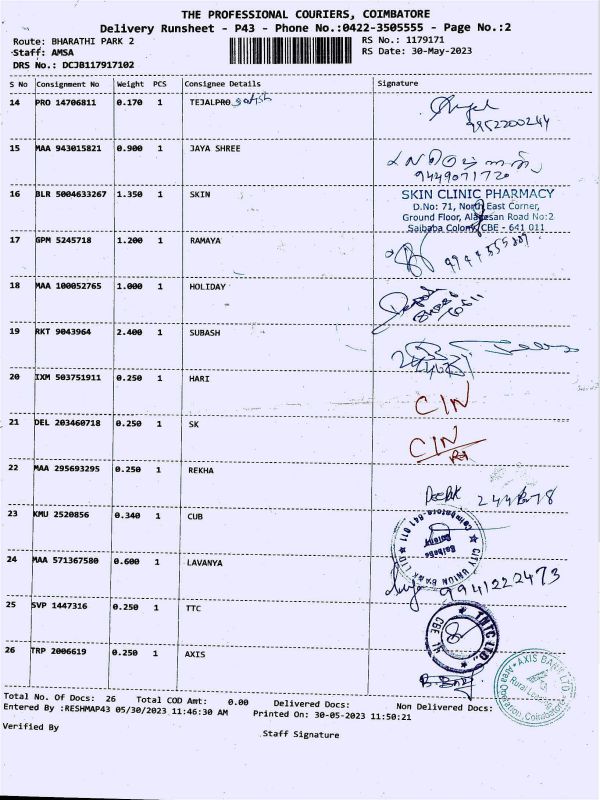 THE PROFESSIONAL COURIERS, COIMBATORE
Delivery Runsheet - P43 - Phone No.:0422-3505555 - Page No.:2
Route: BHARATHI PARK 2 RS No.: 1179171
Staff: AMSA RS Date: 30-May-2023
DRS No.: DCJB117917102
S No Consignment No Weight PCS Consignee Details Signature
14 PRO 14706811 0.170 1 TEJALPRO
9952200244
15 MAA 943015821 0.900 1 JAYA SHREE
9449071720
16 BLR 5004633267 1.350 1 SKIN
SKIN CLINIC PHARMACY
D.No: 71, North East Corner,
Ground Floor, Alagesan Road No:2
Saibaba Colony, CBE - 641 011
17 GPM 5245718 1.200 1 RAMAYA
18 MAA 100052765 1.000 1 HOLIDAY
19 RKT 9043964 2.400 1 SUBASH
20 IXM 503751911 0.250 1 HARI
C/N
21 DEL 203460718 0.250 1 SK
C/N
22 MAA 295693295 0.250 1 REKHA
Deepak
23 KMU 2520856 0.340 1 CUB
CITY UNION BANK LTD
Coimbatore-641 011
Saibaba
Colony
24 MAA 571367580 0.600 1 LAVANYA
9941222473
25 SVP 1447316 0.250 1 TTC
TNTC LTD.,
CBE
26 TRP 2006619 0.250 1 AXIS
AXIS BANK LTD
Coimbatore
Total No. Of Docs: 26 Total COD Amt: 0.00 Delivered Docs: Non Delivered Docs:
Entered By :RESHMAP43 05/30/2023 11:46:30 AM Printed On: 30-05-2023 11:50:21
Verified By Staff Signature